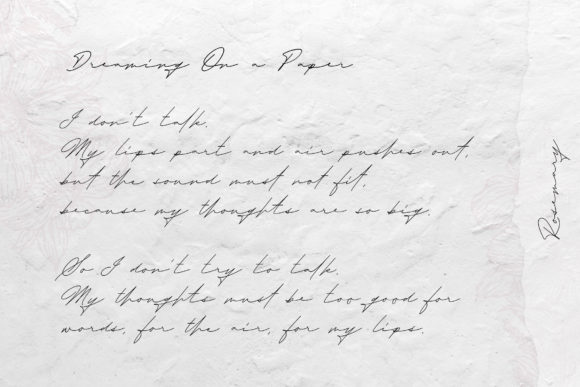 Dreaming On a Paper
I don't talk.
My lips part and air pushes out,
but the sound must not fit,
because my thoughts are so big.
So I don't try to talk.
My thoughts must be too good for
words, for the air, for my lips.
Rosemary